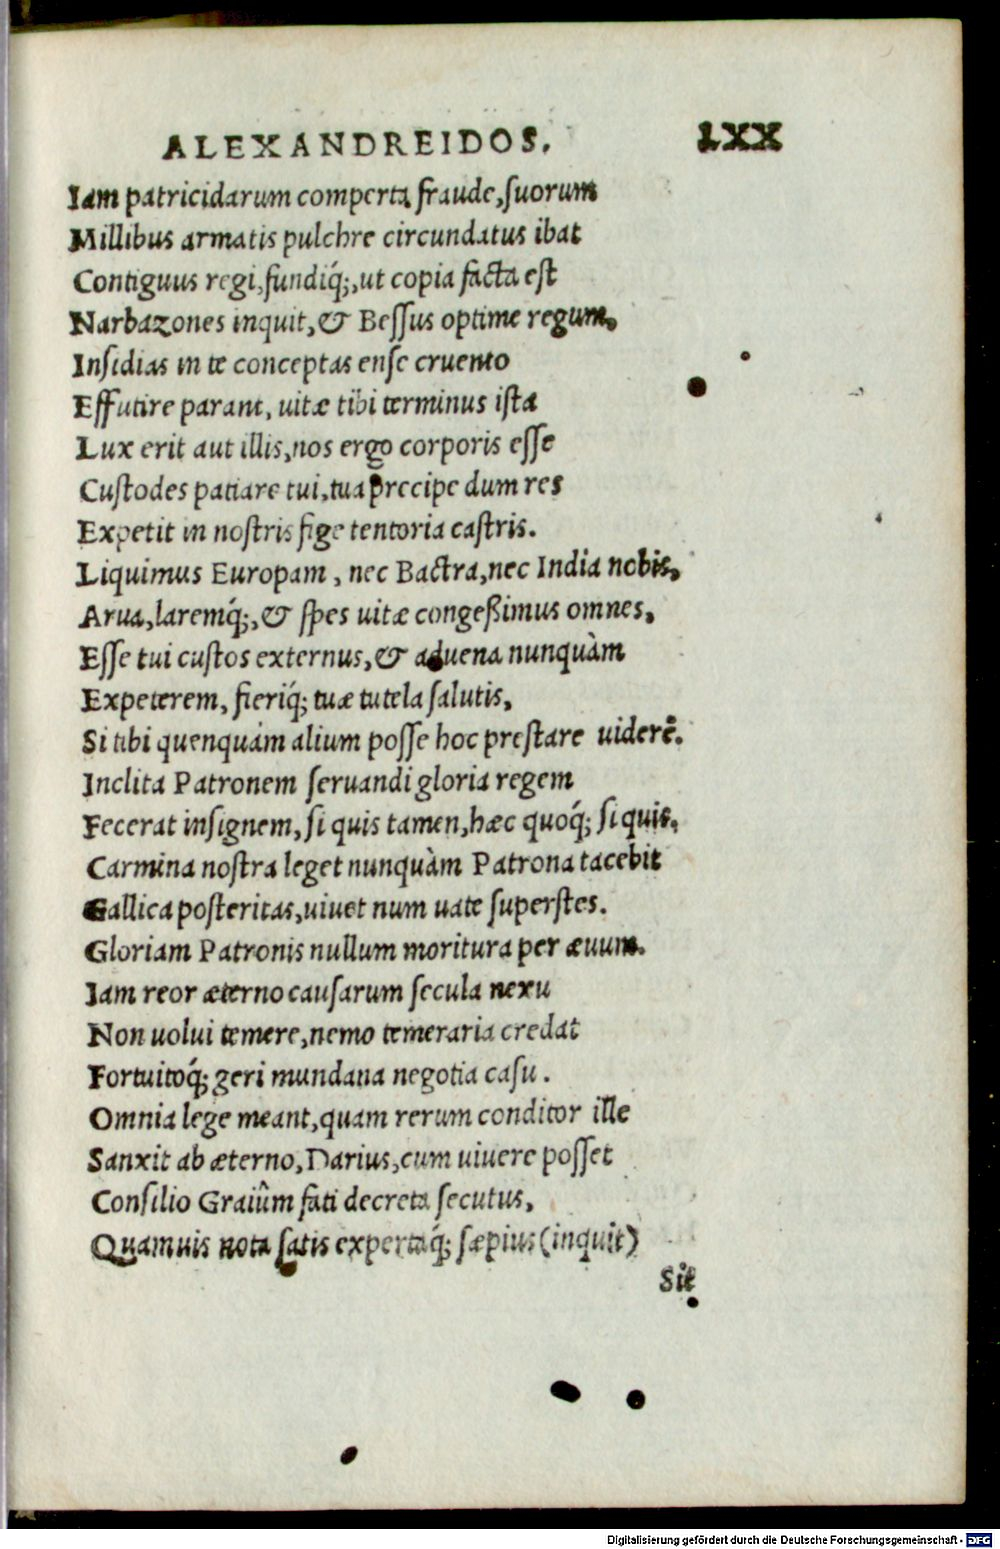 ALEXANDREIDOS. LXX
Iam patricidarum comperta fraude, suorum
Millibus armatis pulchre circundatus ibat
Contiguus regi, fundiq́;, ut copia facta est
Narbazones inquit, & Bessus optime regum,
Insidias in te conceptas ense cruento
Effutire parant, uitæ tibi terminus ista
Lux erit aut illis, nos ergo corporis esse
Custodes patiare tui, tua precipe dum res
Expetit in nostris fige tentoria castris.
Liquimus Europam, nec Bactra, nec India nobis,
Arua, laremq́;, & spes uitæ congeßimus omnes,
Esse tui custos externus, & aduena nunquàm
Expeterem, fieriq́; tuæ tutela salutis,
Si tibi quenquàm alium posse hoc prestare uiderē.
Inclita Patronem seruandi gloria regem
Fecerat insignem, si quis tamen, hæc quoq́; si quis,
Carmina nostra leget nunquàm Patrona tacebit
Gallica posteritas, uiuet num uate superstes.
Gloriam Patronis nullum moritura per æuum.
Iam reor æterno causarum secula nexu
Non uolui temere, nemo temeraria credat
Fortuitoq́; geri mundana negotia casu.
Omnia lege meant, quam rerum conditor ille
Sanxit ab æterno, Darius, cum uiuere posset
Consilio Graiûm fati decreta secutus,
Quamuis nota satis expertaq́; sæpius (inquit)
Sit
Digitalisierung gefördert durch die Deutsche Forschungsgemeinschaft - DFG